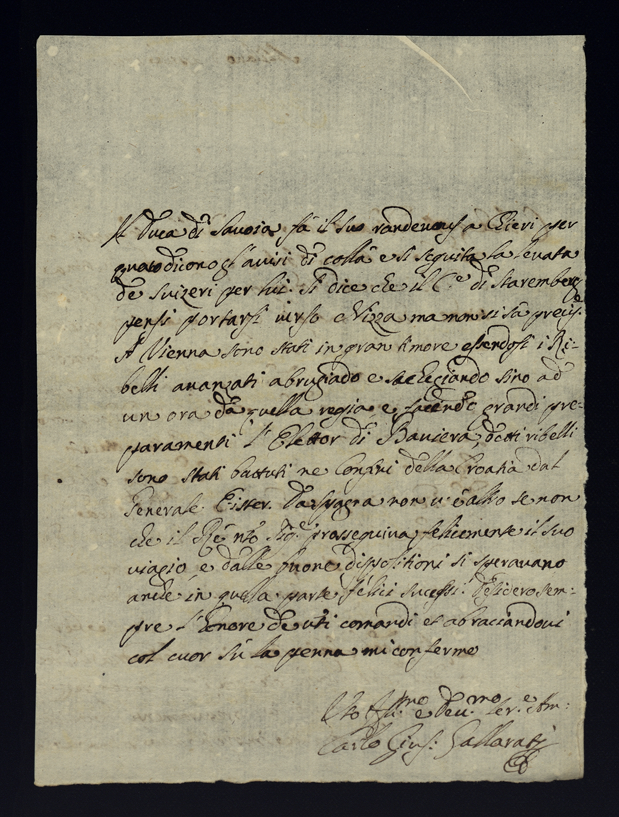 Il Duca di Savoia fà il suo randevous a Chieri per
quato dicono gl'avisi di collà e si seguita la levata
de Suizeri per lui. Si dice che il C.e di Staremberg
pensi portarsi verso Nizza ma non si sà precis.
A Vienna sono stati in gran timore essendosi i Ri-
belli avanzati abrugiado e sachegiando sino ad
un ora da quella regia e facendo grandi pre-
paramenti l'Elettor di Baviera, detti ribelli
sono stati battuti ne confini della Croatia dal
Generale Eister. Da Spagna non v'è altro se non
che il Rè nro Sig.e prosseguiva felicemente il suo
viagio e dalle buone dispositioni si speravano
anche in quella parte felici sucessi. Desidero sem-
pre l'honore de vri comandi et abraciandovi
col cuor sù la penna mi confermo
Vro e Dev.mo Ser.e
Carlo Gius: Gallarati